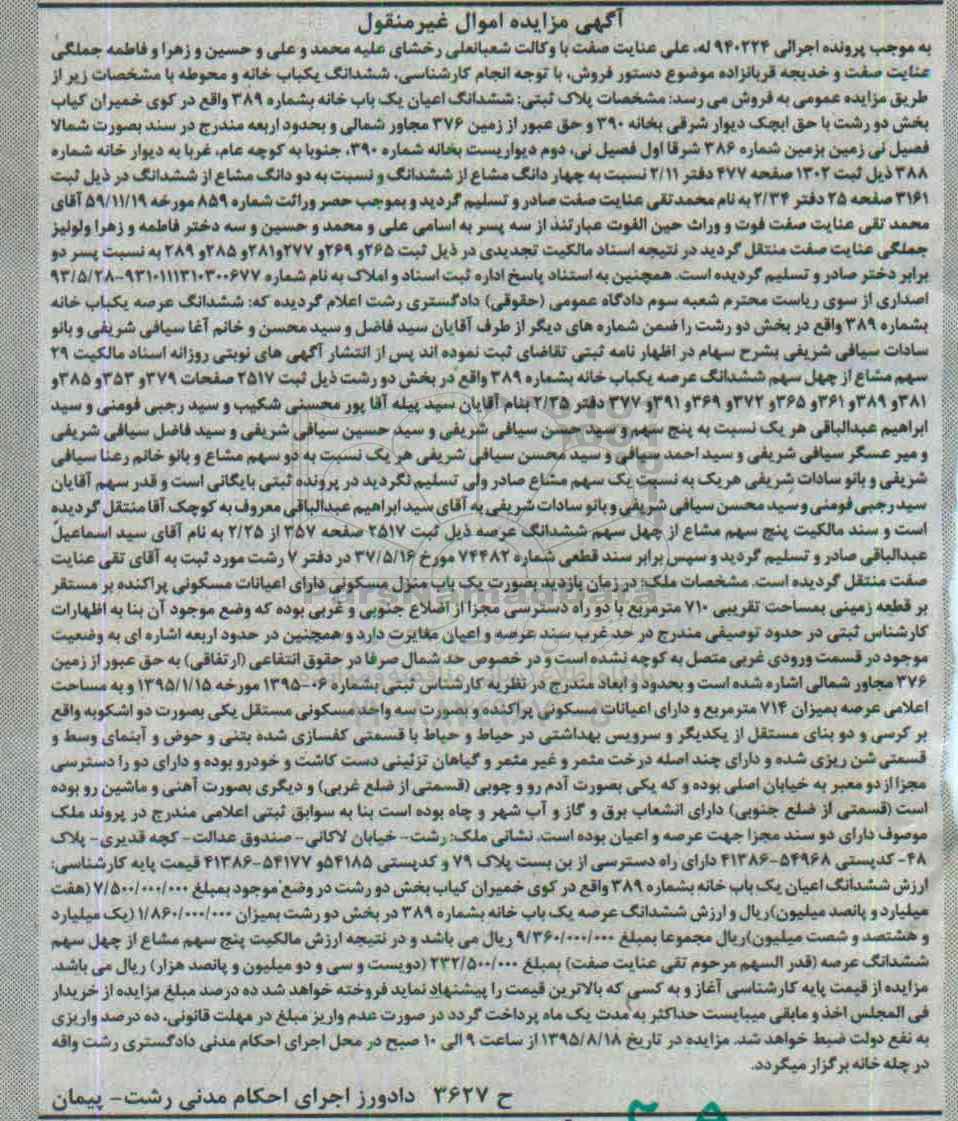 آگهی مزایده اموال غیرمنقول
به موجب پرونده اجرائی ۹۴۰۲۲۴ له، علی عنایت صفت با وکالت شعبانعلی رخشای علیه محمد و علی و حسین و زهرا و فاطمه جملگی
عنایت صفت و خدیجه قربانزاده موضوع دستور فروش، با توجه انجام کارشناسی، ششدانگ یکباب خانه و محوطه با مشخصات زیر از
طریق مزایده عمومی به فروش می رسد: مشخصات پلاک ثبتی: ششدانگ اعیان یک باب خانه بشماره ۳۸۹ واقع در کوی خمیران کیاب
بخش دو رشت با حق ابچک دیوار شرقی بخانه ۳۹۰ و حق عبور از زمین ۳۷۶ مجاور شمالی و بحدود اربعه مندرج در سند بصورت شمالا
فصیل نی زمین بزمین شماره ۳۸۶ شرقا اول فصیل نی، دوم دیواریست بخانه شماره ۳۹۰، جنوبا به کوچه عام، غربا به دیوار خانه شماره
۳۸۸ ذیل ثبت ۱۳۰۲ صفحه ۴۷۷ دفتر ۲/۱۱ نسبت به چهار دانگ مشاع از ششدانگ و نسبت به دو دانگ مشاع از ششدانگ در ذیل ثبت
۳۱۶۱ صفحه ۲۵ دفتر ۲/۳۴ به نام محمدتقی عنایت صفت صادر و تسلیم گردید و بموجب حصر وراثت شماره ۸۵۹ مورخه ۵۹/۱۱/۱۹ آقای
محمد تقی عنایت صفت فوت و وراث حین الفوت عبارتند از سه پسر به اسامی علی و محمد و حسین و سه دختر فاطمه و زهرا ولونیز
جملگی عنایت صفت منتقل گردید در نتیجه اسناد مالکیت تجدیدی در ذیل ثبت ۲۶۵و ۲۶۹و ۲۷۷و۲۸۱و ۲۸۵و ۲۸۹ به نسبت پسر دو
برابر دختر صادر و تسلیم گردیده است. همچنین به استناد پاسخ اداره ثبت اسناد و املاک به نام شماره ۹۳۱۰۱۱۱۳۱۰۳۰۰۶۷۷–۹۳/۵/۲۸
اصداری از سوی ریاست محترم شعبه سوم دادگاه عمومی (حقوقی) دادگستری رشت اعلام گردیده که: ششدانگ عرصه یکباب خانه
بشماره ۳۸۹ واقع در بخش دو رشت را ضمن شماره های دیگر از طرف آقایان سید فاضل و سید محسن و خانم آغا سیافی شریفی و بانو
سادات سیافی شریفی بشرح سهام در اظهار نامه ثبتی تقاضای ثبت نموده اند پس از انتشار آگهی های نوبتی روزانه اسناد مالکیت ۲۹
سهم مشاع از چهل سهم ششدانگ عرصه یکباب خانه بشماره ۳۸۹ واقع در بخش دو رشت ذیل ثبت ۲۵۱۷ صفحات ۳۷۹و ۳۵۳و ۳۸۵و
۳۸۱و ۳۸۹و ۳۶۱و ۳۶۵و ۳۷۲و ۳۶۹و ۳۹۱و ۳۷۷ دفتر ۲/۲۵ بنام آقایان سید پیله آقا پور محسنی شکیب و سید رجبی فومنی و سید
ابراهیم عبدالباقی هر یک نسبت به پنج سهم و سید حسن سیافی شریفی و سید حسین سیافی شریفی و سید فاضل سیافی شریفی
و میر عسگر سیافی شریفی و سید احمد سیافی و سید محسن سیافی شریفی هر یک نسبت به دو سهم مشاع و بانو خانم رعنا سیافی
شریفی و بانو سادات شریفی هریک به نسبت یک سهم مشاع صادر ولی تسلیم نگردید در پرونده ثبتی بایگانی است و قدر سهم آقایان
سید رجبی فومنی و سید محسن سیافی شریفی و بانو سادات شریفی به آقای سید ابراهیم عبدالباقی معروف به کوچک آقا منتقل گردیده
است و سند مالکیت پنج سهم مشاع از چهل سهم ششدانگ عرصه ذیل ثبت ۲۵۱۷ صفحه ۳۵۷ از ۲/۲۵ به نام آقای سید اسماعیل
عبدالباقی صادر و تسلیم گردید و سپس برابر سند قطعی شماره ۷۴۴۸۲ مورخ ۳۷/۵/۱۶ در دفتر ۷ رشت مورد ثبت به آقای تقی عنایت
صفت منتقل گردیده است. مشخصات ملک: در زمان بازدید بصورت یک باب منزل مسکونی دارای اعیانات مسکونی پراکنده بر مستقر
بر قطعه زمینی بمساحت تقریبی ۷۱۰ مترمربع با دو راه دسترسی مجزا از اضلاع جنوبی و غربی بوده که وضع موجود آن بنا به اظهارات
کارشناس ثبتی در حدود توصیفی مندرج در حد غرب سند عرصه و اعیان مغایرت دارد و همچنین در حدود اربعه اشاره ای به وضعیت
موجود در قسمت ورودی غربی متصل به کوچه نشده است و در خصوص حد شمال صرفا در حقوق انتفاعی (ارتفاقی) به حق عبور از زمین
۳۷۶ مجاور شمالی اشاره شده است و بحدود و ابعاد مندرج در نظریه کارشناس ثبتی بشماره ۰۶–۱۳۹۵ مورخه ۱۳۹۵/۱/۱۵ و به مساحت
اعلامی عرصه بمیزان ۷۱۴ مترمربع و دارای اعیانات مسکونی پراکنده و بصورت سه واحد مسکونی مستقل یکی بصورت دو اشکوبه واقع
بر کرسی و دو بنای مستقل از یکدیگر و سرویس بهداشتی در حیاط و حیاط با قسمتی کفسازی شده بتنی و حوض و آبنمای وسط و
قسمتی شن ریزی شده و دارای چند اصله درخت مثمر و غیر مثمر و گیاهان تزئینی دست کاشت و خودرو بوده و دارای دو را دسترسی
مجزا از دو معبر به خیابان اصلی بوده و که یکی بصورت آدم رو و چوبی (قسمتی از ضلع غربی) و دیگری بصورت آهنی و ماشین رو بوده
است (قسمتی از ضلع جنوبی) دارای انشعاب برق و گاز و آب شهر و چاه بوده است بنا به سوابق ثبتی اعلامی مندرج در پروند ملک
موصوف دارای دو سند مجزا جهت عرصه و اعیان بوده است. نشانی ملک: رشت– خیابان لاکانی– صندوق عدالت– کچه قدیری– پلاک
۴۸– کدپستی ۵۴۹۶۸–۴۱۳۸۶ دارای راه دسترسی از بن بست پلاک ۷۹ و کدپستی ۵۴۱۸۵و ۵۴۱۷۷–۴۱۳۸۶ قیمت پایه کارشناسی:
ارزش ششدانگ اعیان یک باب خانه بشماره ۳۸۹ واقع در کوی خمیران کیاب بخش دو رشت در وضع موجود بمبلغ ۷/۵۰۰/۰۰۰/۰۰۰ (هفت
میلیارد و پانصد میلیون)ریال و ارزش ششدانگ عرصه یک باب خانه بشماره ۳۸۹ در بخش دو رشت بمیزان ۱/۸۶۰/۰۰۰/۰۰۰ (یک میلیارد
و هشتصد و شصت میلیون)ریال مجموعا بمبلغ ۹/۳۶۰/۰۰۰/۰۰۰ ریال می باشد و در نتیجه ارزش مالکیت پنج سهم مشاع از چهل سهم
ششدانگ عرصه (قدر السهم مرحوم تقی عنایت صفت) بمبلغ ۲۳۲/۵۰۰/۰۰۰ (دویست و سی و دو میلیون و پانصد هزار) ریال می باشد.
مزایده از قیمت پایه کارشناسی آغاز و به کسی که بالاترین قیمت را پیشنهاد نماید فروخته خواهد شد ده درصد مبلغ مزایده از خریدار
فی المجلس اخذ و مابقی میبایست حداکثر به مدت یک ماه پرداخت گردد در صورت عدم واریز مبلغ در مهلت قانونی، ده درصد واریزی
به نفع دولت ضبط خواهد شد. مزایده در تاریخ ۱۳۹۵/۸/۱۸ از ساعت ۹ الی ۱۰ صبح در محل اجرای احکام مدنی دادگستری رشت واقه
در چله خانه برگزار میگردد.
ح ۳۶۲۷ دادورز اجرای احکام مدنی رشت– پیمان